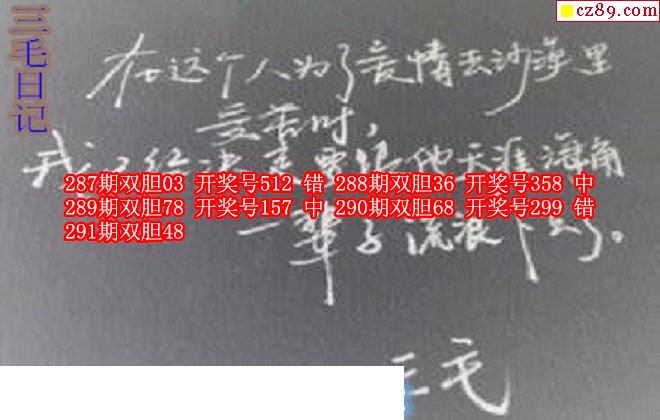 cz89.com
三毛日记
在这个人为了爱情去沙漠里
受苦时，
我已经决定要跟他天涯海角
287期双胆03 开奖号512 错 288期双胆36 开奖号358 中
289期双胆78 开奖号157 中 290期双胆68 开奖号299 错
291期双胆48
一辈子流浪下去了。
三毛